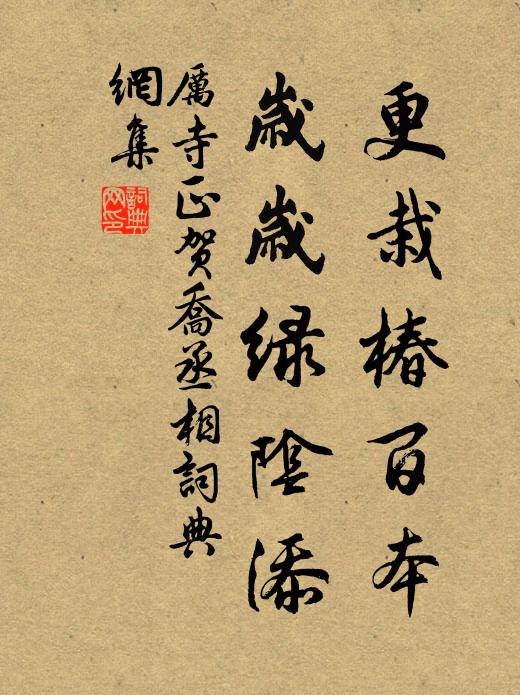 更栽椿百本
歲歲绿陰添
厲寺正贺喬丞相詞典
網集
詞典
网印